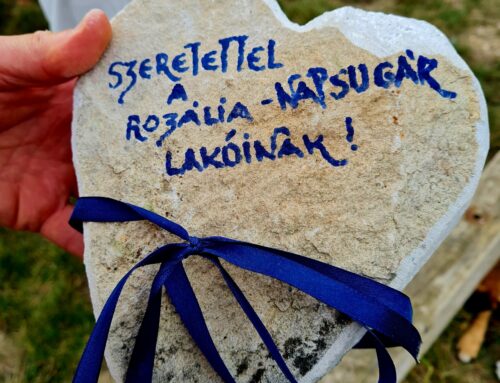 SZERETETTEL
A
ROZÁLIA-NAPSUGÁR
LAKÓINAK!